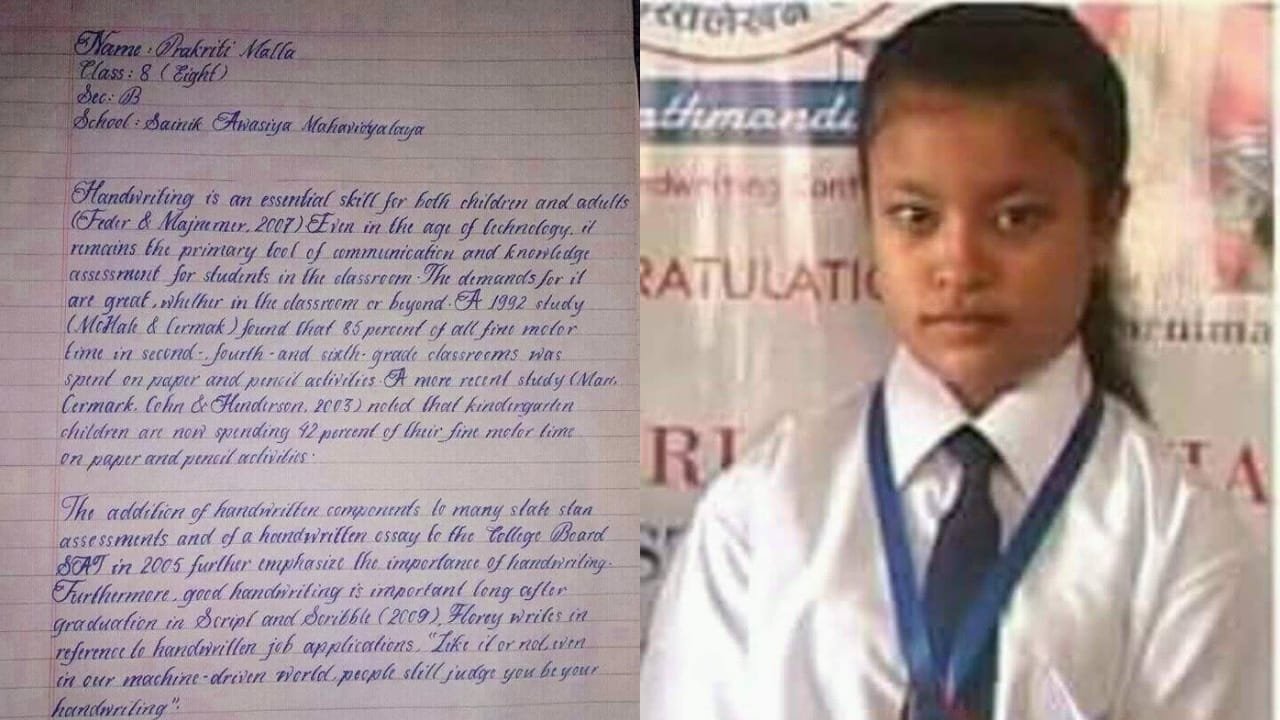 Name : Prakriti Malla
Class : 8 (Eight)
Sec : B
School : Sainik Awasiya Mahavidyalaya
Handwriting is an essential skill for both children and adults
(Feder & Majnemer, 2007) Even in the age of technology, it
remains the primary tool of communication and knowledge
assessment for students in the classroom. The demands for it
are great, whether in the classroom or beyond. A 1992 study
(McHale & Cermak) found that 85 percent of all fine motor
time in second-, fourth-and sixth-grade classrooms was
spent on paper and pencil activities. A more recent study (Marr,
Cermark, Cohn & Henderson, 2003) noted that kindergarten
children are now spending 42 percent of their fine motor time
on paper and pencil activities.
The addition of handwritten components to many state stan
assessments and of a handwritten essay to the College Board
SAT in 2005 further emphasize the importance of handwriting.
Furthermore, good handwriting is important long after
graduation in Script and Scribble (2009), Florey writes in
reference to handwritten job applications, "Like it or not, even
in our machine-driven world, people still judge you be your
handwriting".
स्तलेखन
athmandu
ndwriting Cont
RATULATIO
urnima
RI
IA
ST